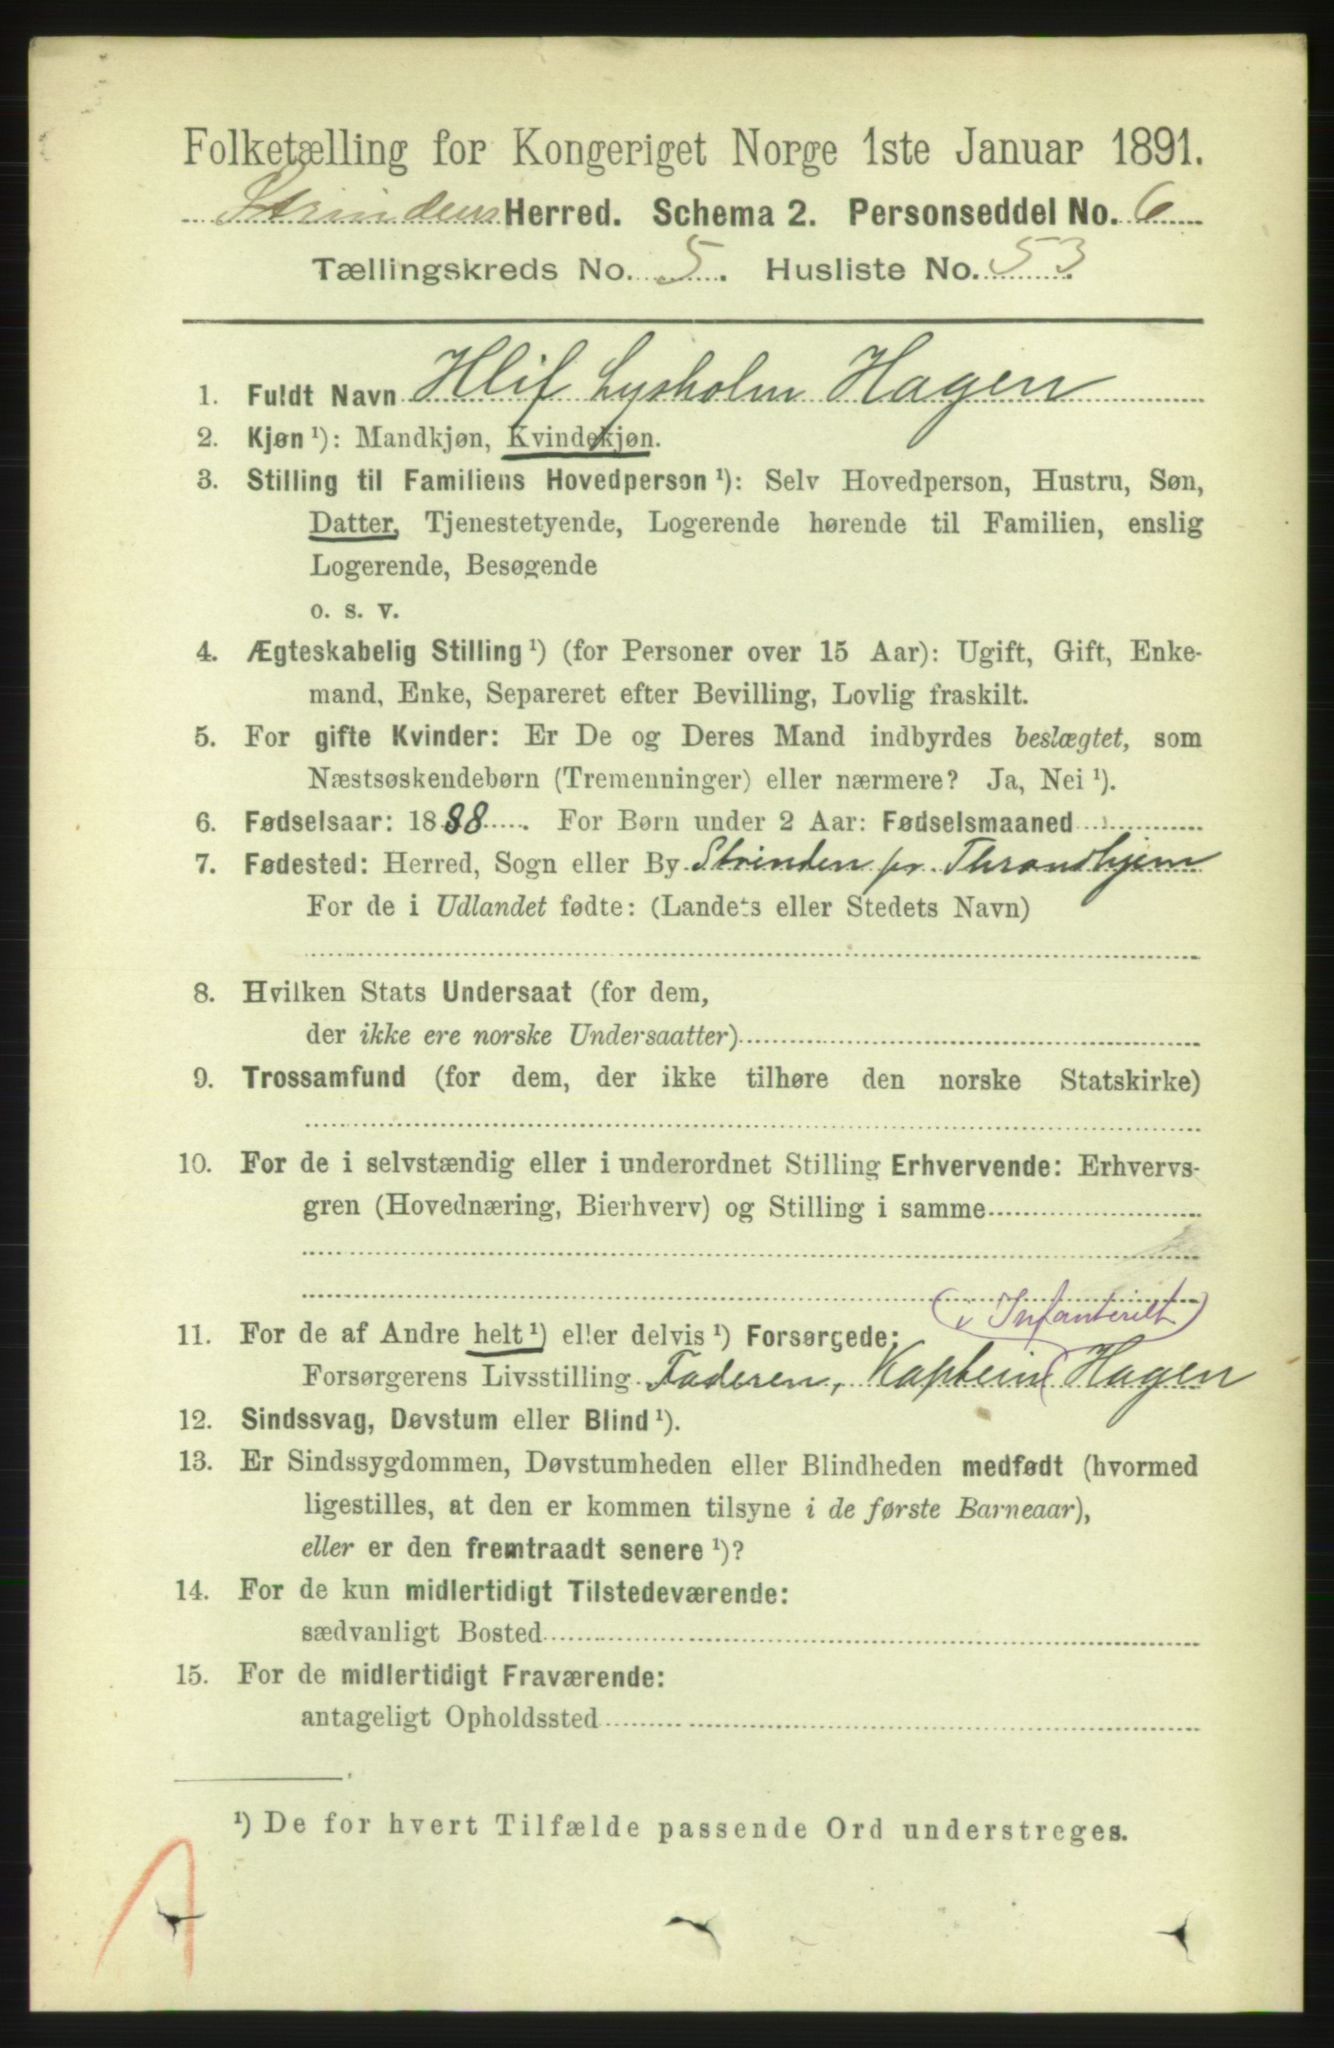 Folketælling for Kongeriget Norge 1ste Januar 1891.
Strindens Herred. Schema 2. Personseddel No. 6
Tællingskreds No. 5. Husliste No. 53
1. Fuldt Navn Hlif Lysholm Hagen
2. Kjøn ¹): Mandkjøn, Kvindekjøn.
3. Stilling til Familiens Hovedperson ¹): Selv Hovedperson, Hustru, Søn,
Datter, Tjenestetyende, Logerende hørende til Familien, enslig
Logerende, Besøgende
o. s. v.
4. Ægteskabelig Stilling ¹) (for Personer over 15 Aar): Ugift, Gift, Enke-
mand, Enke, Separeret efter Bevilling, Lovlig fraskilt.
5. For gifte Kvinder: Er De og Deres Mand indbyrdes beslægtet, som
Næstsøskendebørn (Tremenninger) eller nærmere? Ja, Nei ¹).
6. Fødselsaar: 1888. For Børn under 2 Aar: Fødselsmaaned
7. Fødested: Herred, Sogn eller By Strinden pr. Throndhjem
For de i Udlandet fødte: (Landets eller Stedets Navn)
8. Hvilken Stats Undersaat (for dem,
der ikke ere norske Undersaatter)
9. Trossamfund (for dem, der ikke tilhøre den norske Statskirke)
10. For de i selvstændig eller i underordnet Stilling Erhvervende: Erhvervs-
gren (Hovednæring, Bierhverv) og Stilling i samme
(i Infanteriet)
11. For de af Andre helt ¹) eller delvis ¹) Forsørgede:
Forsørgerens Livsstilling Faderen, Kaptein Hagen
12. Sindssvag, Døvstum eller Blind ¹).
13. Er Sindssygdommen, Døvstumheden eller Blindheden medfødt (hvormed
ligestilles, at den er kommen tilsyne i de første Barneaar),
eller er den fremtraadt senere ¹)?
14. For de kun midlertidigt Tilstedeværende:
sædvanligt Bosted
15. For de midlertidigt Fraværende:
antageligt Opholdssted
¹) De for hvert Tilfælde passende Ord understreges.